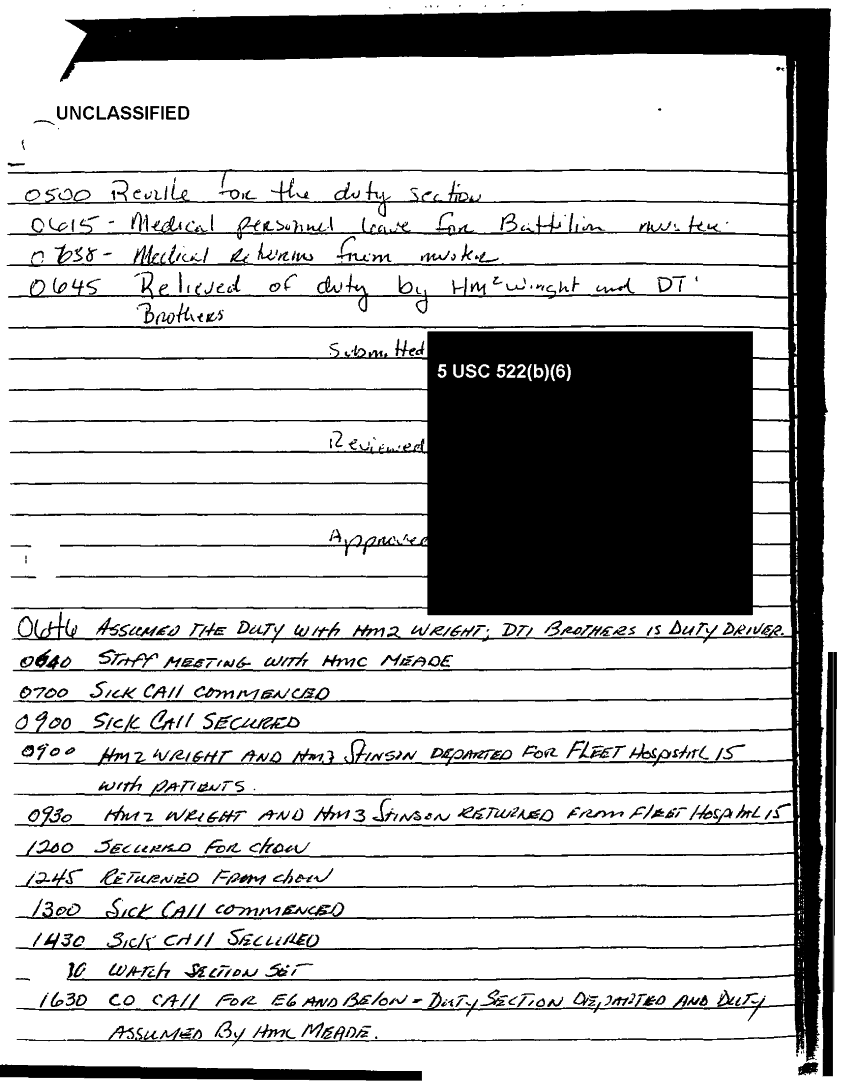 UNCLASSIFIED
0500 Reveille for the duty section
0615 - Medical personnel leave for Battilion muster
Medical returns from muster
0645 Relieved of duty by HM2 Wright and DT1
Brothers
Submitted
5 USC 522(b)(6)
Reviewed
Approved
0646 ASSUMED THE DUTY WITH HM2 WRIGHT; DT1 BROTHERS IS DUTY DRIVER.
0640 STAFF MEETING WITH HMC MEADE
0700 SICK CALL COMMENCED
0900 SICK CALL SECURED
0900 HM2 WRIGHT AND HM3 STINSON DEPARTED FOR FLEET HOSPITAL 15
WITH PATIENTS.
0930 HM2 WRIGHT AND HM3 STINSON RETURNED FROM FLEET HOSPITAL 15
1200 SECURED FOR CHOW
1245 RETURNED FROM CHOW
1300 SICK CALL COMMENCED
1430 SICK CALL SECURED
WATCH SECTION SET
1630 CO CALL FOR E6 AND BELOW - DUTY SECTION DEPARTED AND DUTY
ASSUMED BY HMC MEADE.